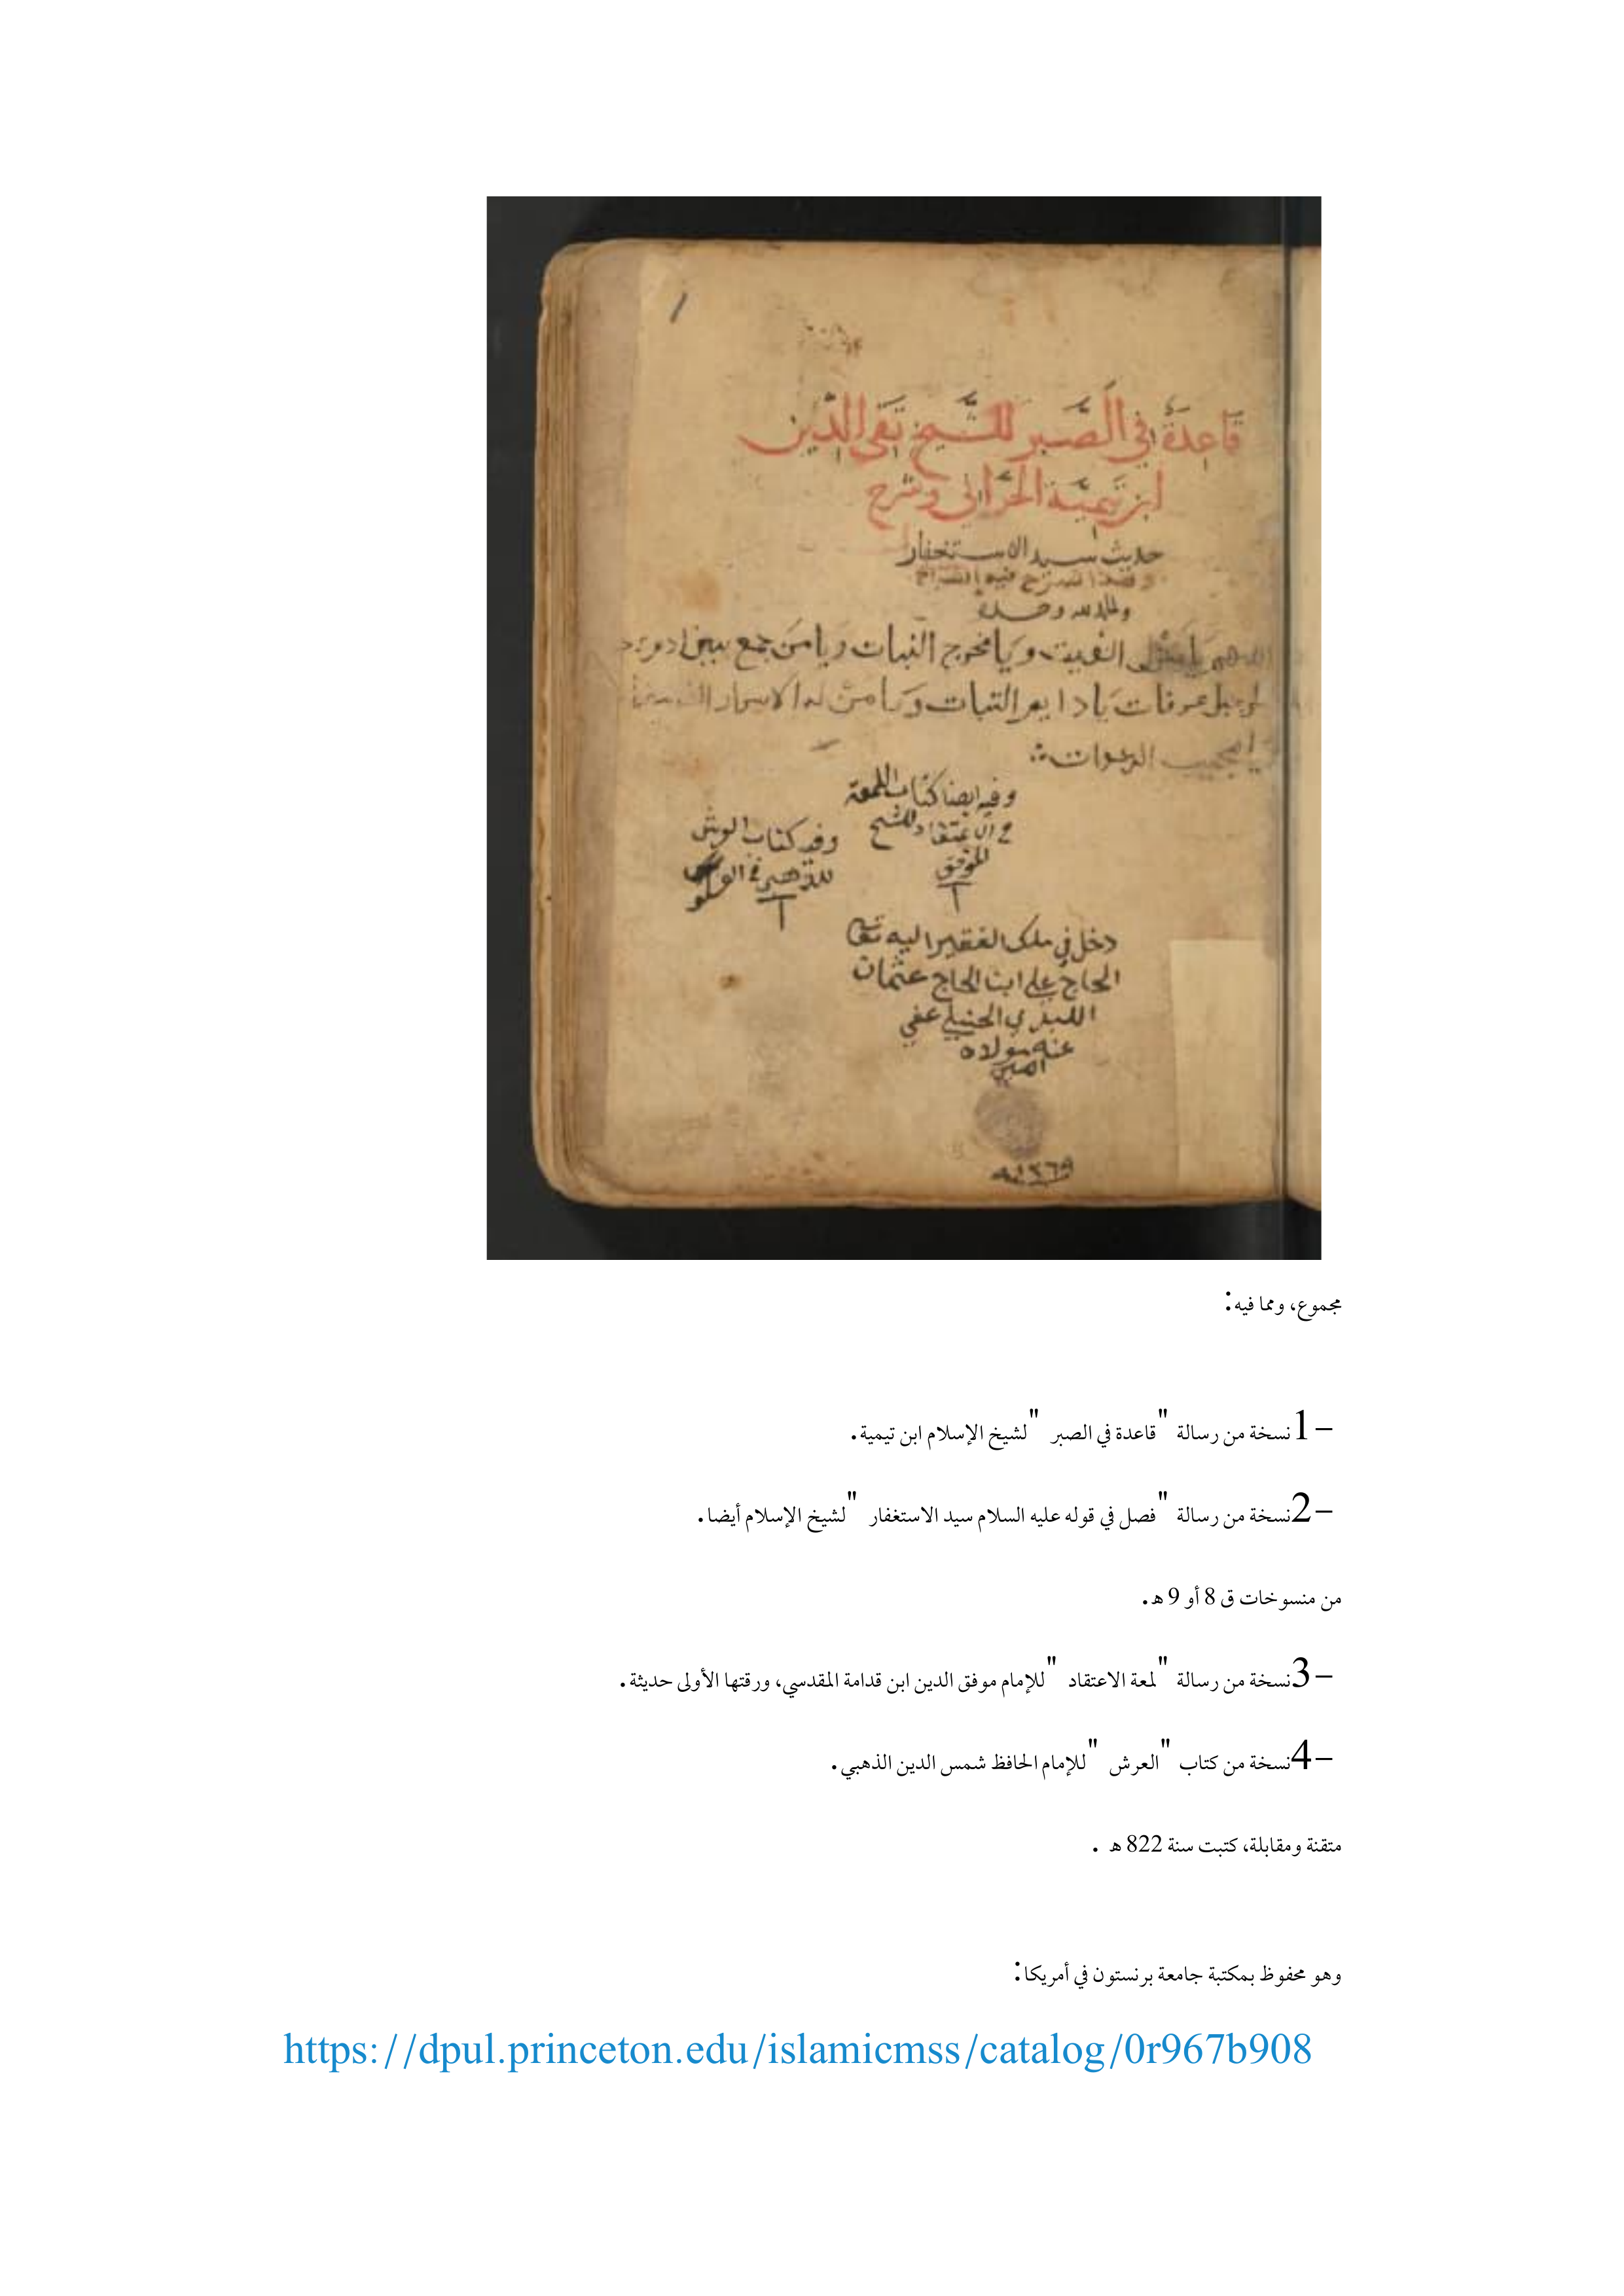 ١
قاعدة في الصبر للشيخ تقي الدين
ابن تيمية الحراني وشرح
حديث سيد الاستغفار
والحمد لله وحده
ويا مخرج النبات ويا من جمع بين
عرفات يا
الدعوات
وفيه ايضا كتاب اللمعة
في الاعتقاد للشيخ
الموفق
وفيه كتاب العرش
للذهبي في
دخل في ملك الفقير اليه تعالى
الحاج علي ابن الحاج عثمان
الحنبلي عفي
عنه مولاه
امين
مجموع، ومما فيه:
1– نسخة من رسالة "قاعدة في الصبر" لشيخ الإسلام ابن تيمية.
2– نسخة من رسالة "فصل في قوله عليه السلام سيد الاستغفار" لشيخ الإسلام أيضا.
من منسوخات ق 8 أو 9 هـ.
3– نسخة من رسالة "لمعة الاعتقاد" للإمام موفق الدين ابن قدامة المقدسي، ورقتها الأولى حديثة.
4– نسخة من كتاب "العرش" للإمام الحافظ شمس الدين الذهبي.
متقنة ومقابلة، كتبت سنة 822 هـ .
وهو محفوظ بمكتبة جامعة برنستون في أمريكا:
https://dpul.princeton.edu/islamicmss/catalog/0r967b908